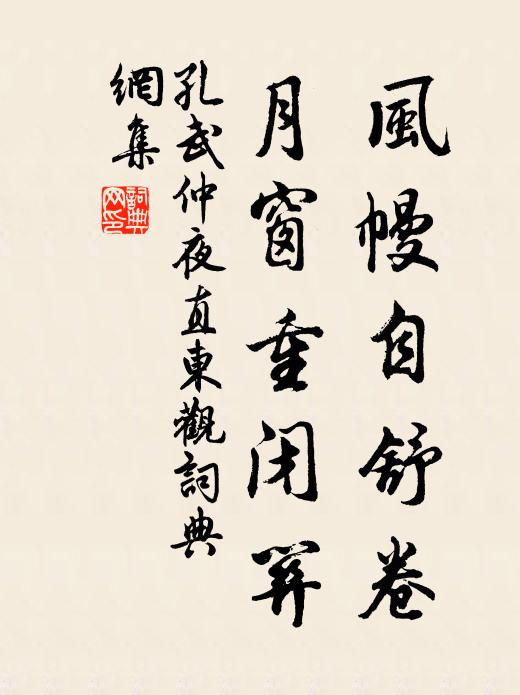 風幔自舒卷
月窗重閉開
孔武仲夜直東觀詞典
網集
詞典
网印